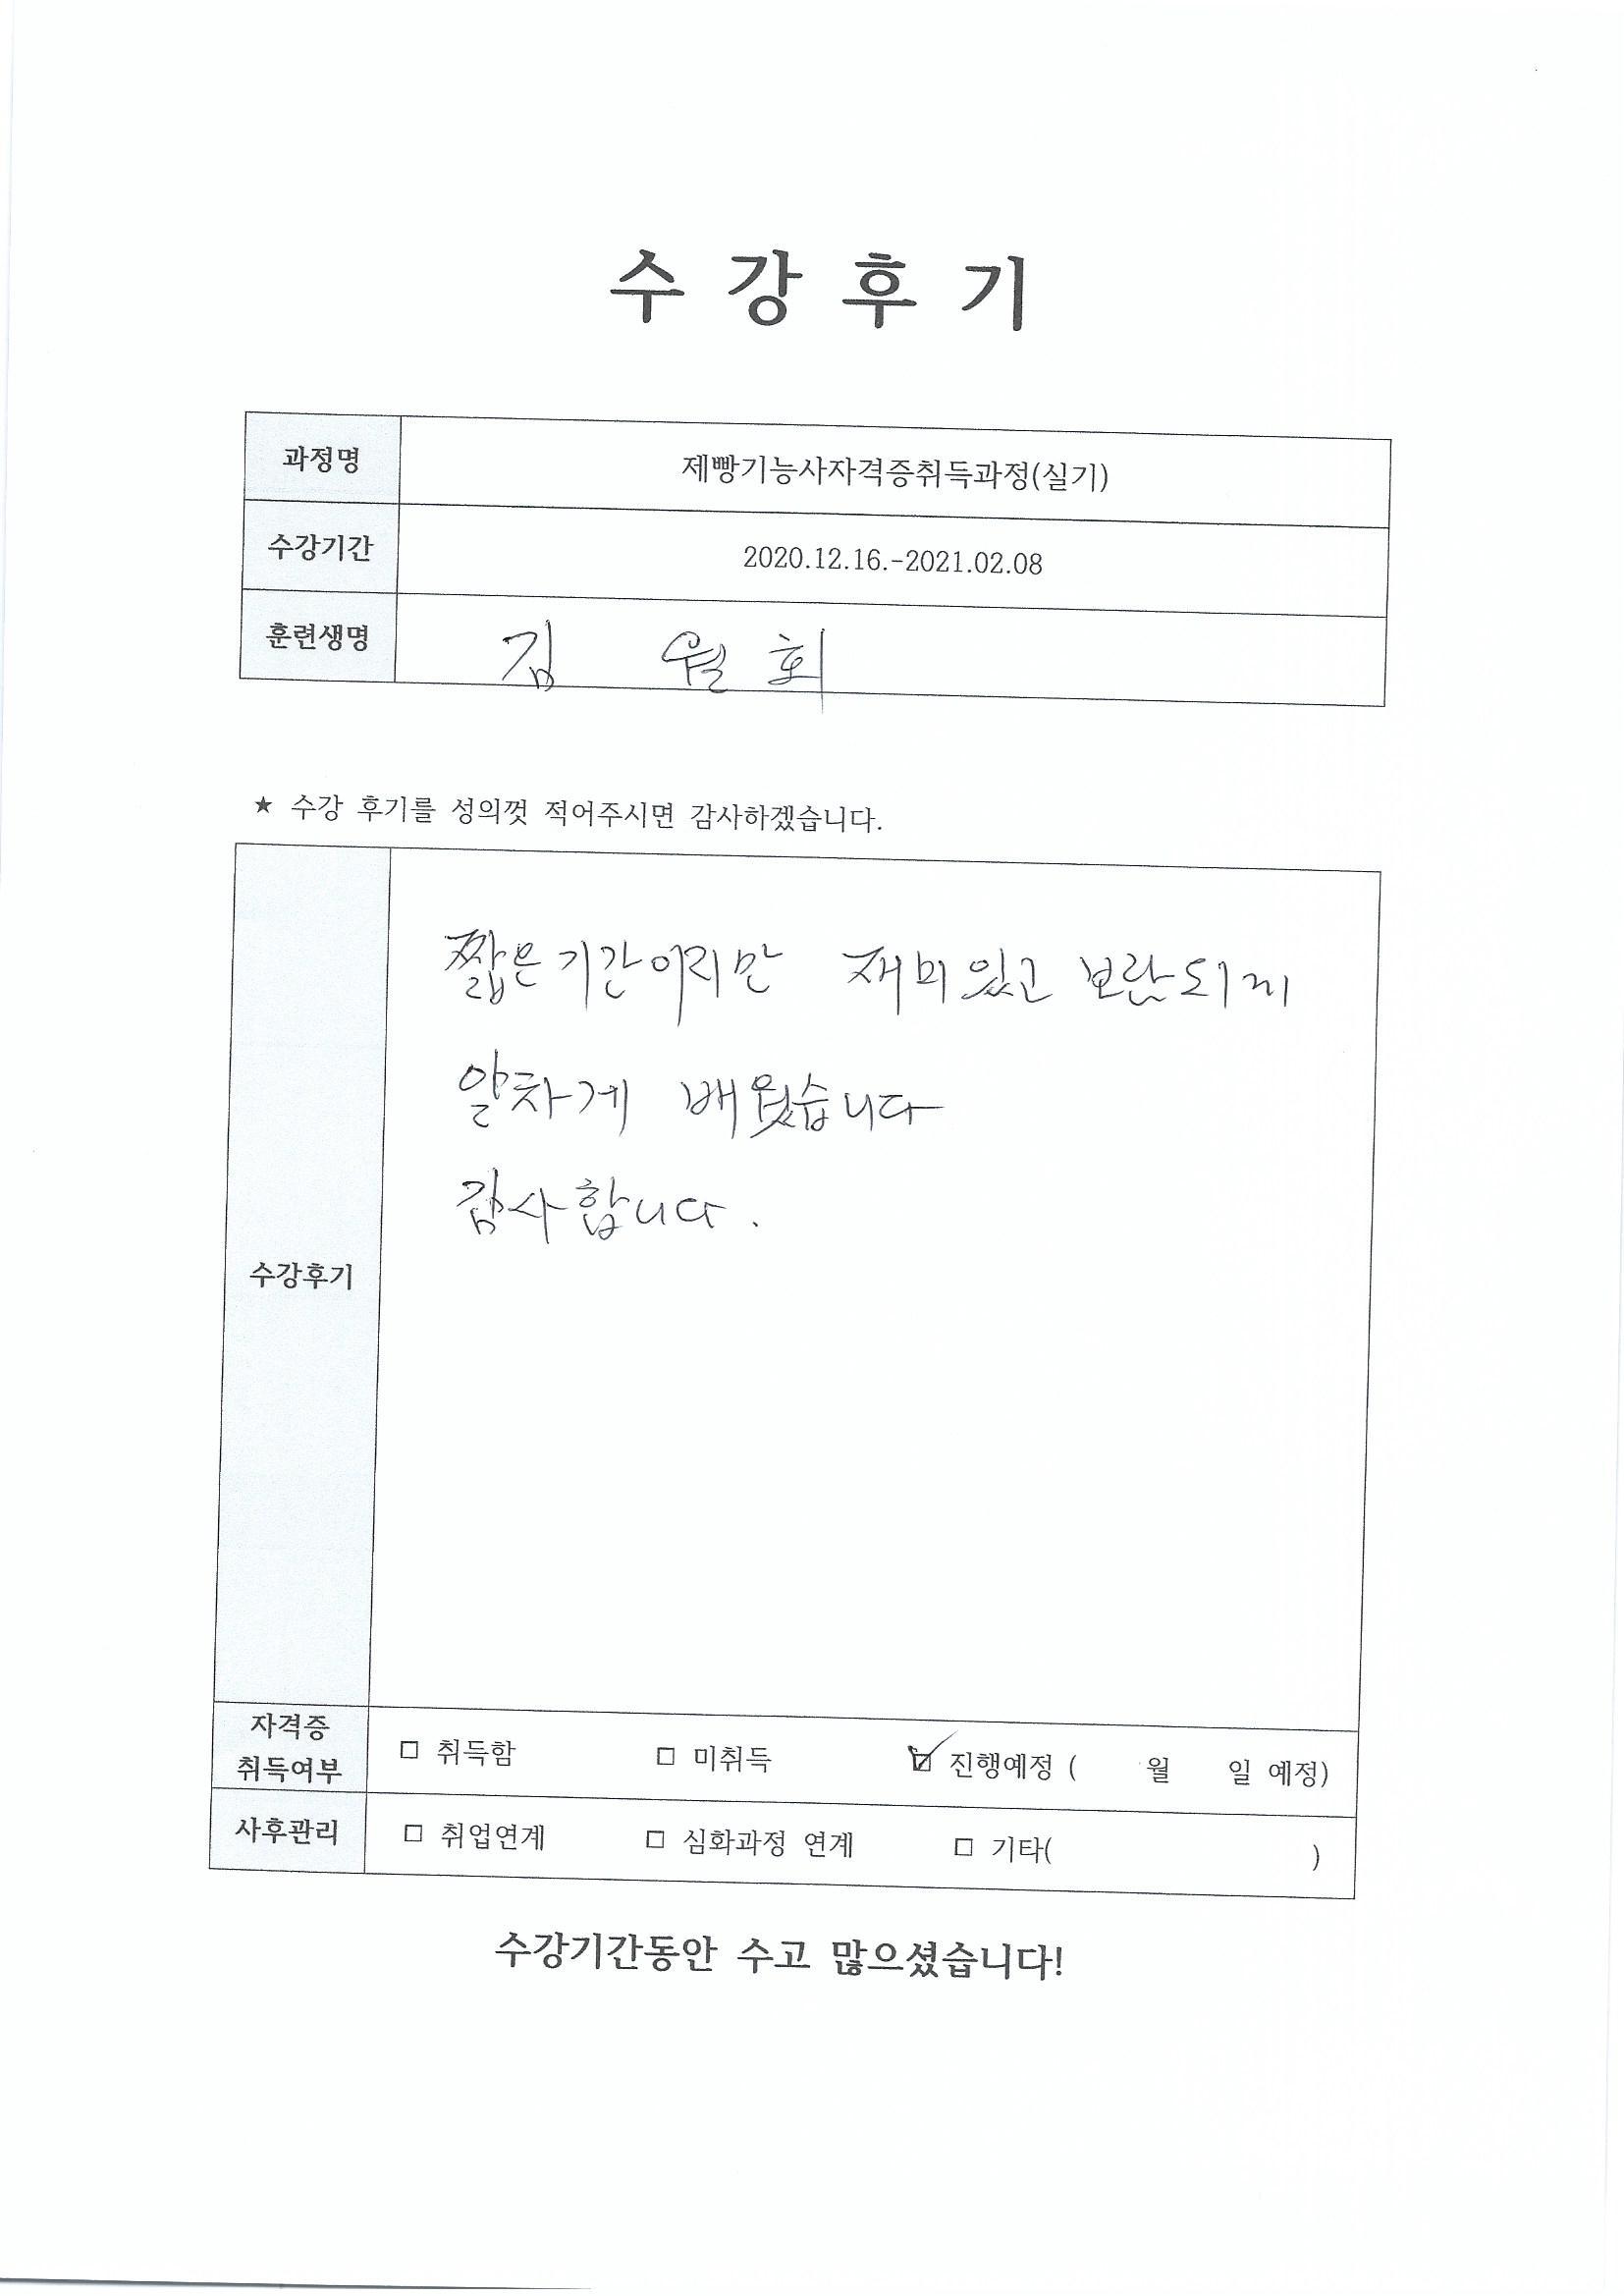 수 강 후 기
과정명 제빵기능사자격증취득과정(실기)
수강기간 2020.12.16.-2021.02.08
훈련생명 김 월 회
★ 수강 후기를 성의껏 적어주시면 감사하겠습니다.
짧은 기간이지만 재미있고 보람되게
알차게 배웠습니다
감사합니다.
수강후기
자격증
취득여부 □ 취득함 □ 미취득 ☑ 진행예정 ( 월 일 예정)
사후관리 □ 취업연계 □ 심화과정 연계 □ 기타( )
수강기간동안 수고 많으셨습니다!